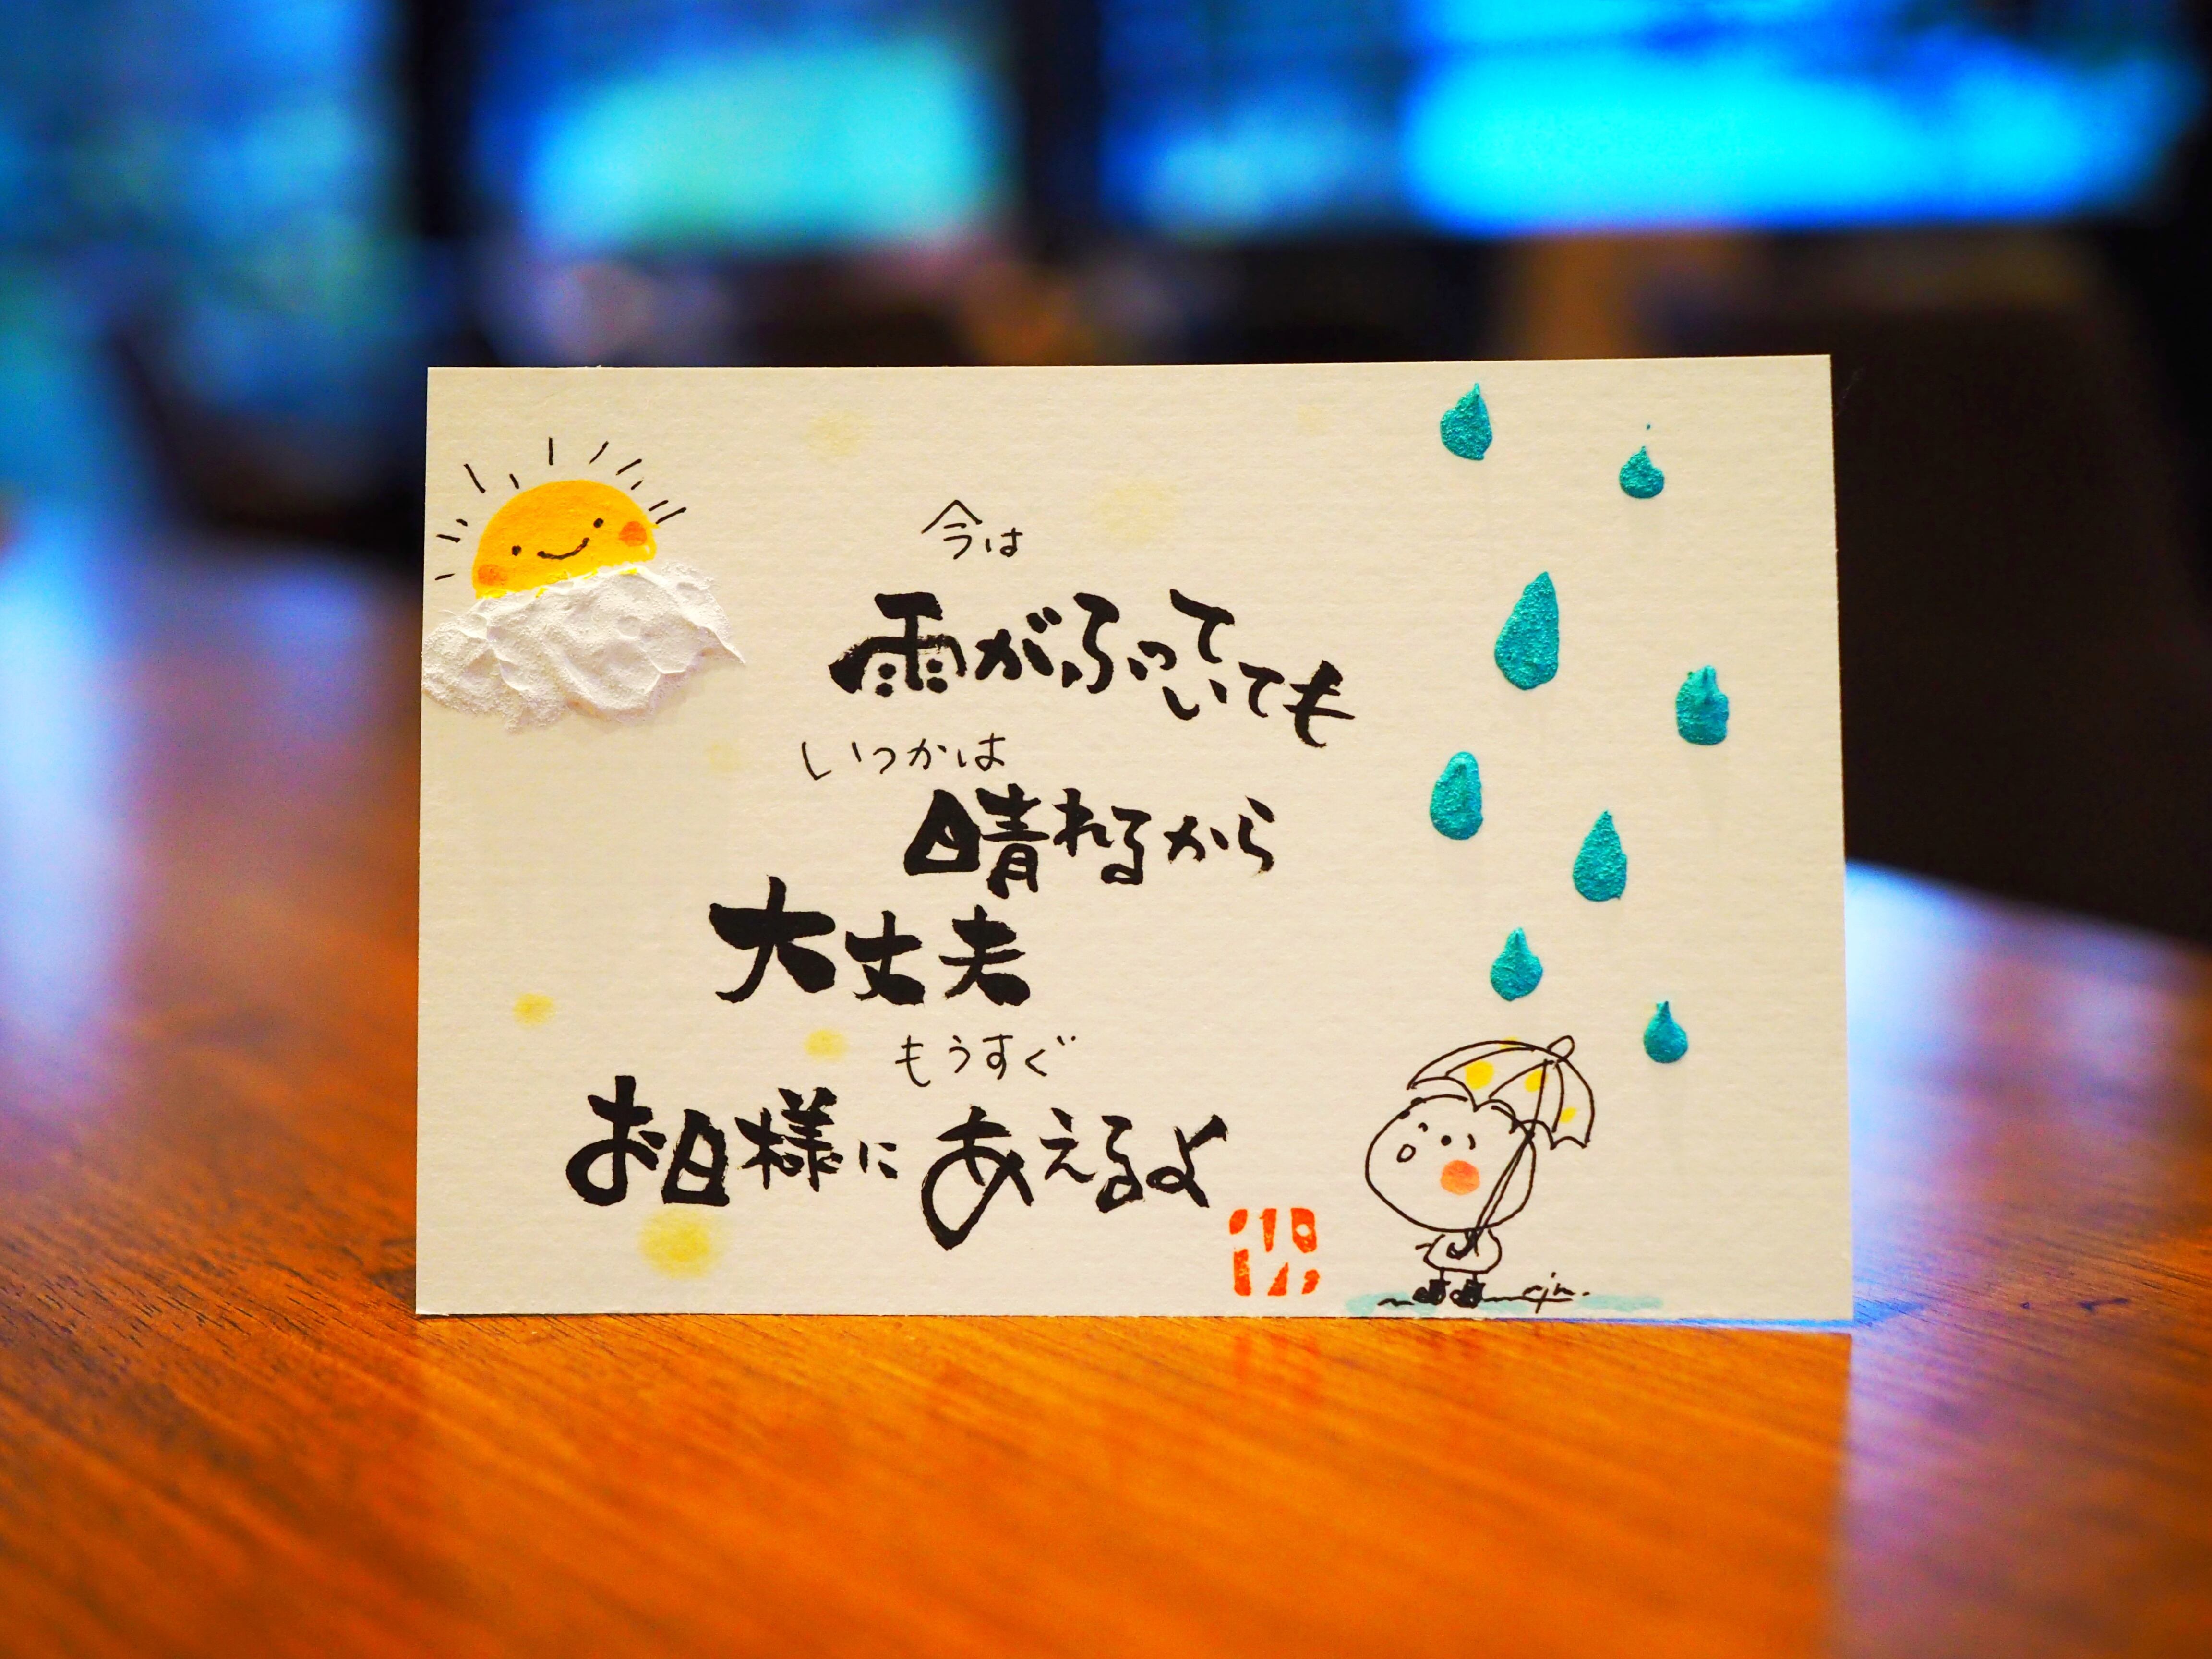 今は
雨がふっていても
いつかは
晴れるから
大丈夫
もうすぐ
お日様にあえるよ